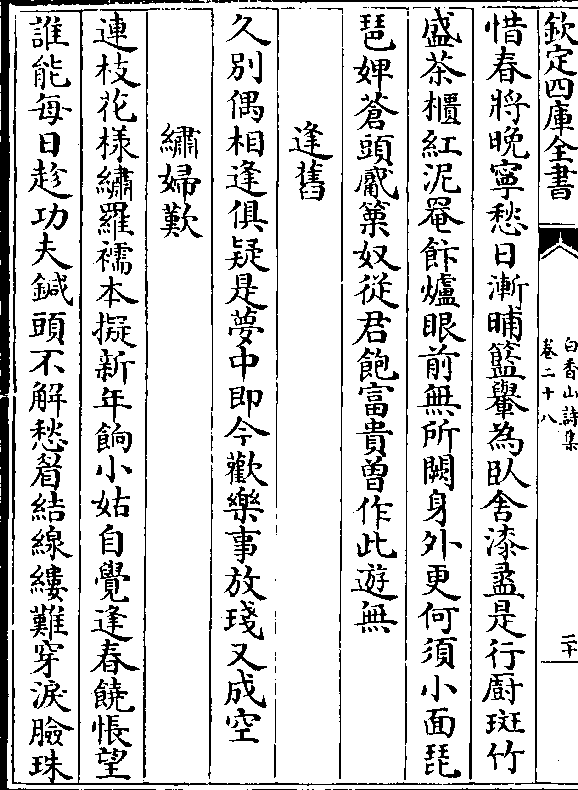 欽定四庫全書
白香山詩集
卷二十八
二十
惜春將晚寧愁日漸晡籃轝為臥舍漆盝是行厨斑竹
盛茶櫃紅泥罨飰爐眼前無所闕身外更何須小面琵
琶婢蒼頭觱篥奴從君飽富貴曽作此遊無
逢舊
久别偶相逢俱疑是夢中即今歡樂事放琖又成空
繡婦歎
連枝花様繡羅襦本擬新年餉小姑自覺逢春饒悵望
誰能每日趂功夫鍼頭不解愁眉結線縷難穿淚臉珠